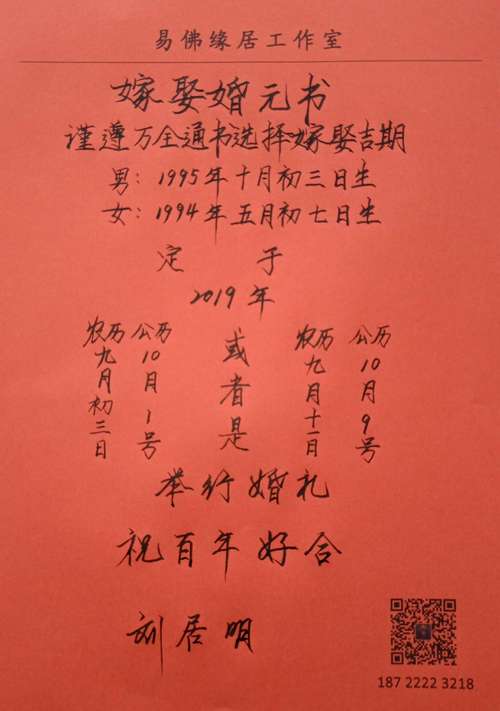 易佛缘居工作室
嫁娶婚元书
谨遵万全通书选择嫁娶吉期
男：1995年十月初三日生
女：1994年五月初七日生
定于
2019年
农历九月初三日
公历10月1号
或者是
农历九月十一日
公历10月9号
举行婚礼
祝百年好合
刘居明
187 2222 3218